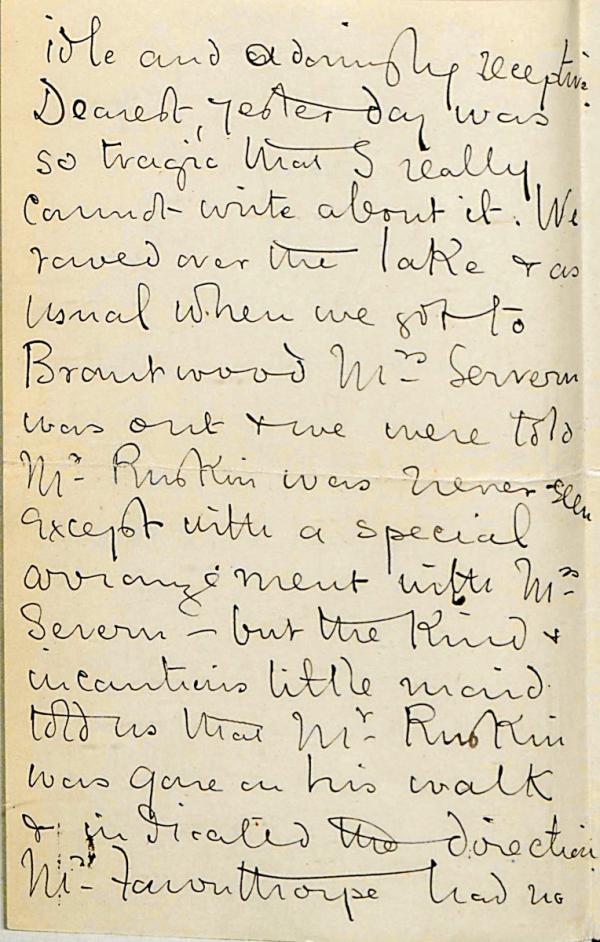 idle and adoringly receptive.
Dearest, yesterday was
so tragic that I really
cannot write about it. We
rowed over the lake & as
usual when we got to
Brantwood Mrs Servern
was out & we were told
Mr Ruskin was never seen
except with a special
arrangement with Mrs
Severn – but the kind &
incautious little maid
told us that Mr Ruskin
was gone on his walk
& indicated the direction
Mrs Faunthorpe had no